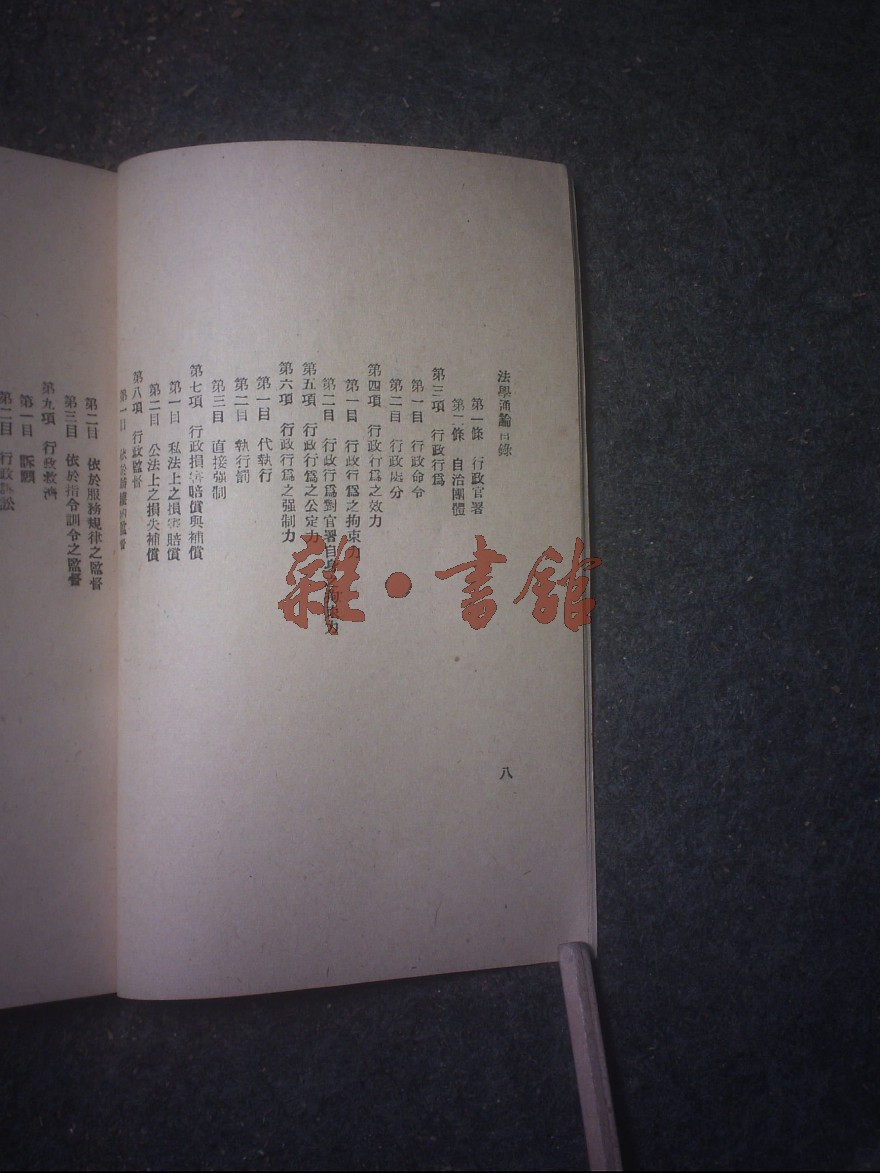 法學通論目錄
第一條 行政官署
第二條 自治團體
第三項 行政行爲
第一目 行政命令
第二目 行政處分
第四項 行政行爲之效力
第一目 行政行爲之拘束力
第二目 行政行爲對官署自身之拘束力
第五項 行政行爲之公定力
第六項 行政行爲之强制力
第一目 代執行
第二目 執行罰
第三目 直接强制
第七項 行政損害賠償與補償
第一目 私法上之損害賠償
第二目 公法上之損失補償
第八項 行政監督
第一目 依於 監督
八
第二目 依於服務規律之監督
第三目 依於指令訓令之監督
第九項 行政救濟
第一目 訴願
第二目 行政訴訟
雜·書館